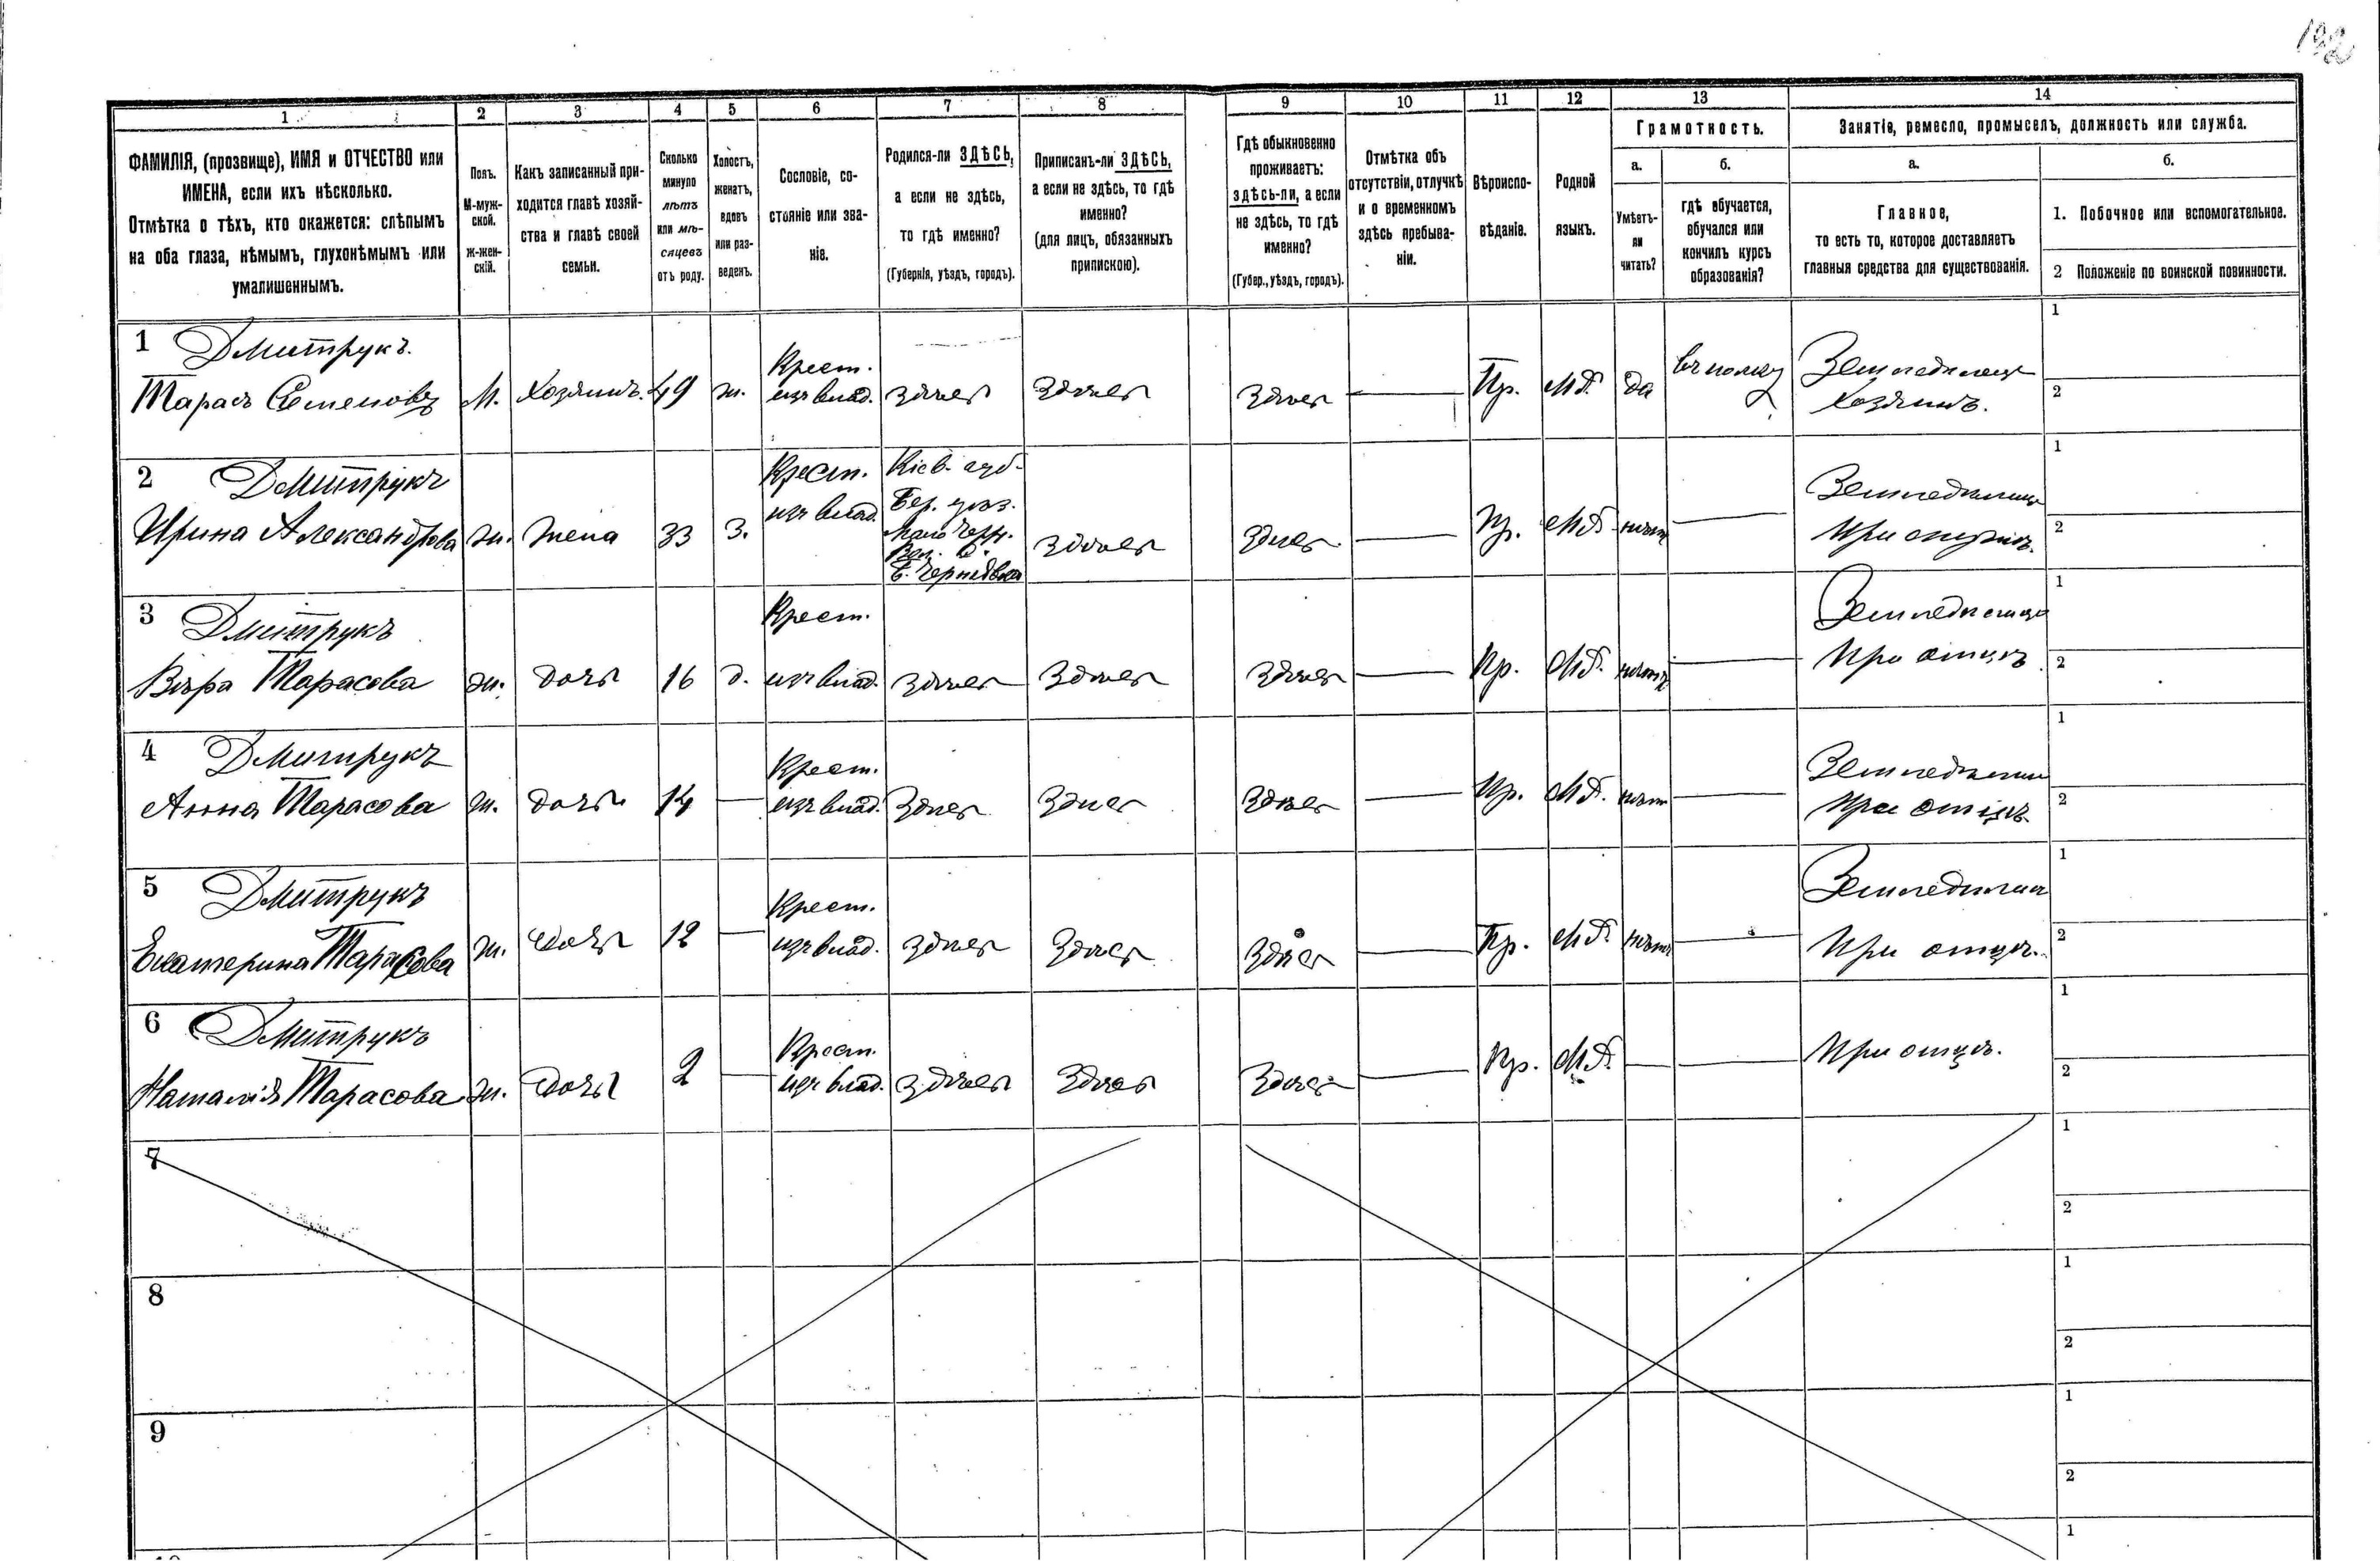 1 2 3 4 5 6 7 8 9 10 11 12 13 14
ФАМИЛІЯ, (прозвище), ИМЯ и ОТЧЕСТВО или
ИМЕНА, если ихъ нѣсколько.
Отмѣтка о тѣхъ, кто окажется: слѣпымъ
на оба глаза, нѣмымъ, глухонѣмымъ или
умалишеннымъ.
Полъ.
М-муж-
ской.
Ж-жен-
скій.
Какъ записанный при-
ходится главѣ хозяй-
ства и главѣ своей
семьи.
Сколько
минуло
лѣтъ
или мѣ-
сяцевъ
отъ роду.
Холостъ,
женатъ,
вдовъ
или раз-
веденъ.
Сословіе, со-
стояніе или зва-
ніе.
Родился-ли ЗДѢСЬ,
а если не здѣсь,
то гдѣ именно?
(Губернія, уѣздъ, городъ).
Приписанъ-ли ЗДѢСЬ,
а если не здѣсь, то гдѣ
именно?
(для лицъ, обязанныхъ
припискою).
Гдѣ обыкновенно
проживаетъ:
здѣсь-ли, а если
не здѣсь, то гдѣ
именно?
(Губер., уѣздъ, городъ).
Отмѣтка объ
отсутствіи, отлучкѣ
и о временномъ
здѣсь пребыва-
ніи.
Вѣроиспо-
вѣданіе.
Родной
языкъ.
Грамотность.
а.
Умѣетъ-
ли
читать?
б.
гдѣ обучается,
обучался или
кончилъ курсъ
образованія?
Занятіе, ремесло, промыселъ, должность или служба.
а.
Главное,
то есть то, которое доставляетъ
главныя средства для существованія.
б.
1. Побочное или вспомогательное.
2 Положеніе по воинской повинности.
1 Дмитрукъ.
Тарасъ Семеновъ М. Хозяинъ. 49 ж. Крест.
изъ влад. здѣсь здѣсь здѣсь — Пр. МР. да въ полку Земледѣлецъ
Хозяинъ. 1
2
2 Дмитрукъ
Ирина Александрова ж. жена 33 З. Крест.
изъ влад. Кіев. губ.
Бер. уѣз.
Вол. с.
здѣсь здѣсь — Пр. МР. нѣтъ — Земледѣлица
При мужѣ. 1
2
3 Дмитрукъ
Вѣра Тарасова ж. дочь 16 д. Крест.
изъ влад. здѣсь здѣсь здѣсь — Пр. МР. нѣтъ — Земледѣлица
При отцѣ 1
2
4 Дмитрукъ
Анна Тарасова ж. дочь 14 — Крест.
изъ влад. здѣсь здѣсь здѣсь — Пр. МР. нѣтъ — Земледѣлица
При отцѣ. 1
2
5 Дмитрукъ
Екатерина Тарасова ж. дочь 12 — Крест.
изъ влад. здѣсь здѣсь здѣсь — Пр. МР. нѣтъ — Земледѣлица
При отцѣ. 1
2
6 Дмитрукъ
Наталія Тарасова ж. дочь 2 — Крест.
изъ влад. здѣсь здѣсь здѣсь — Пр. МР. — — При отцѣ. 1
2
7 1
2
8 1
2
9 1
2
1